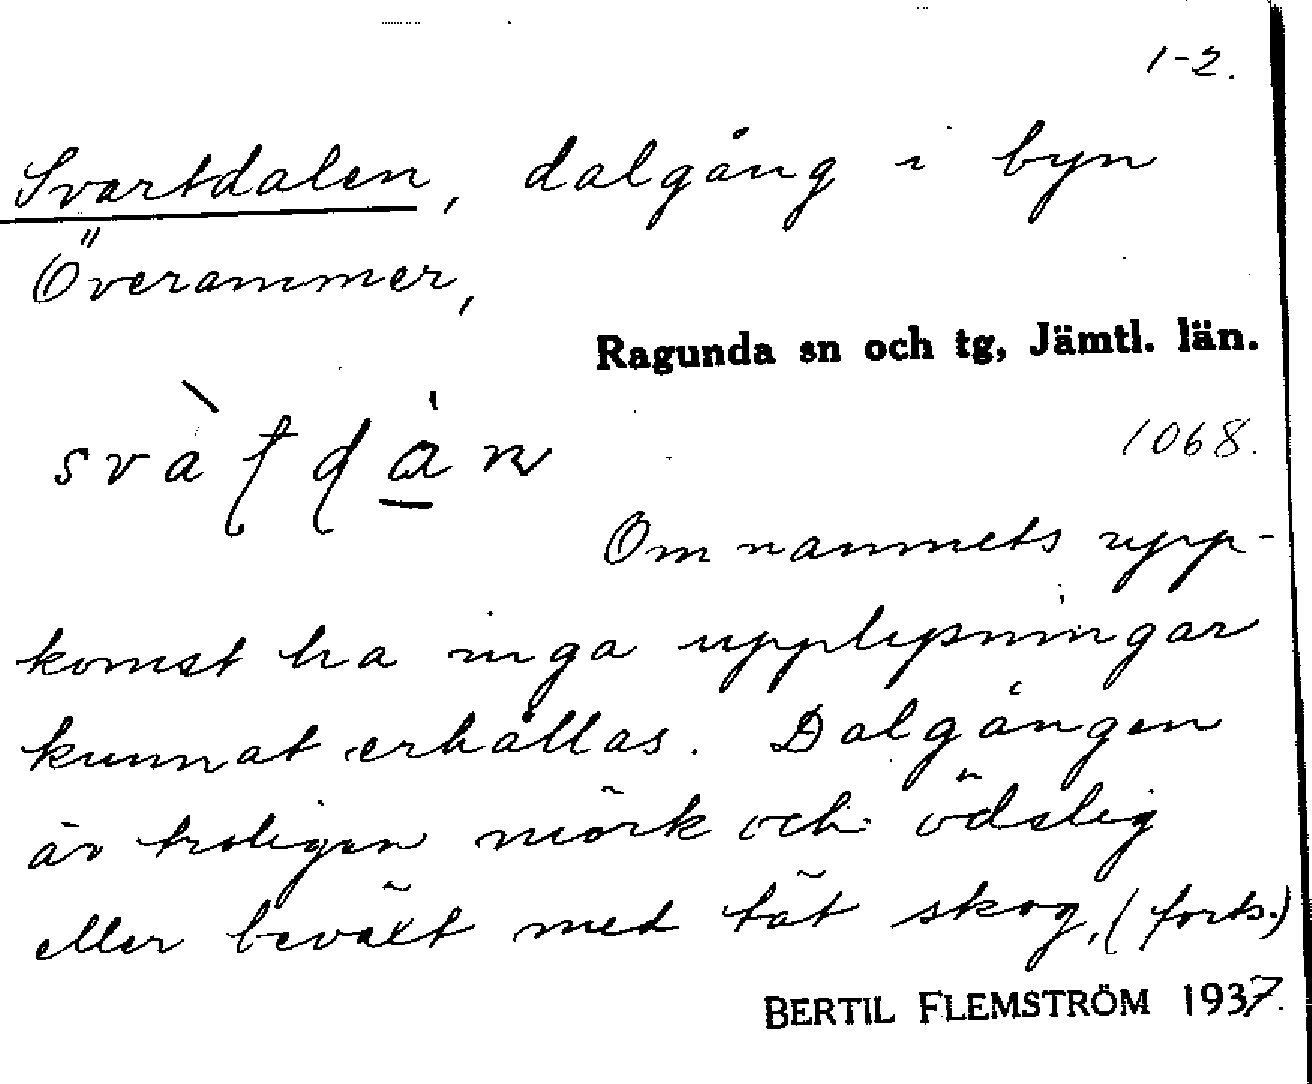 1-2.
Svartdalen, dalgång i byn
Överammer,
Ragunda sn och tg, Jämtl. län.
1068.
Om namnets upp-
komst ha inga upplysningar
kunnat erhållas. Dalgången
är troligen mörk och ödslig
eller beväxt med tät skog, (forts.)
BERTIL FLEMSTRÖM 1937.